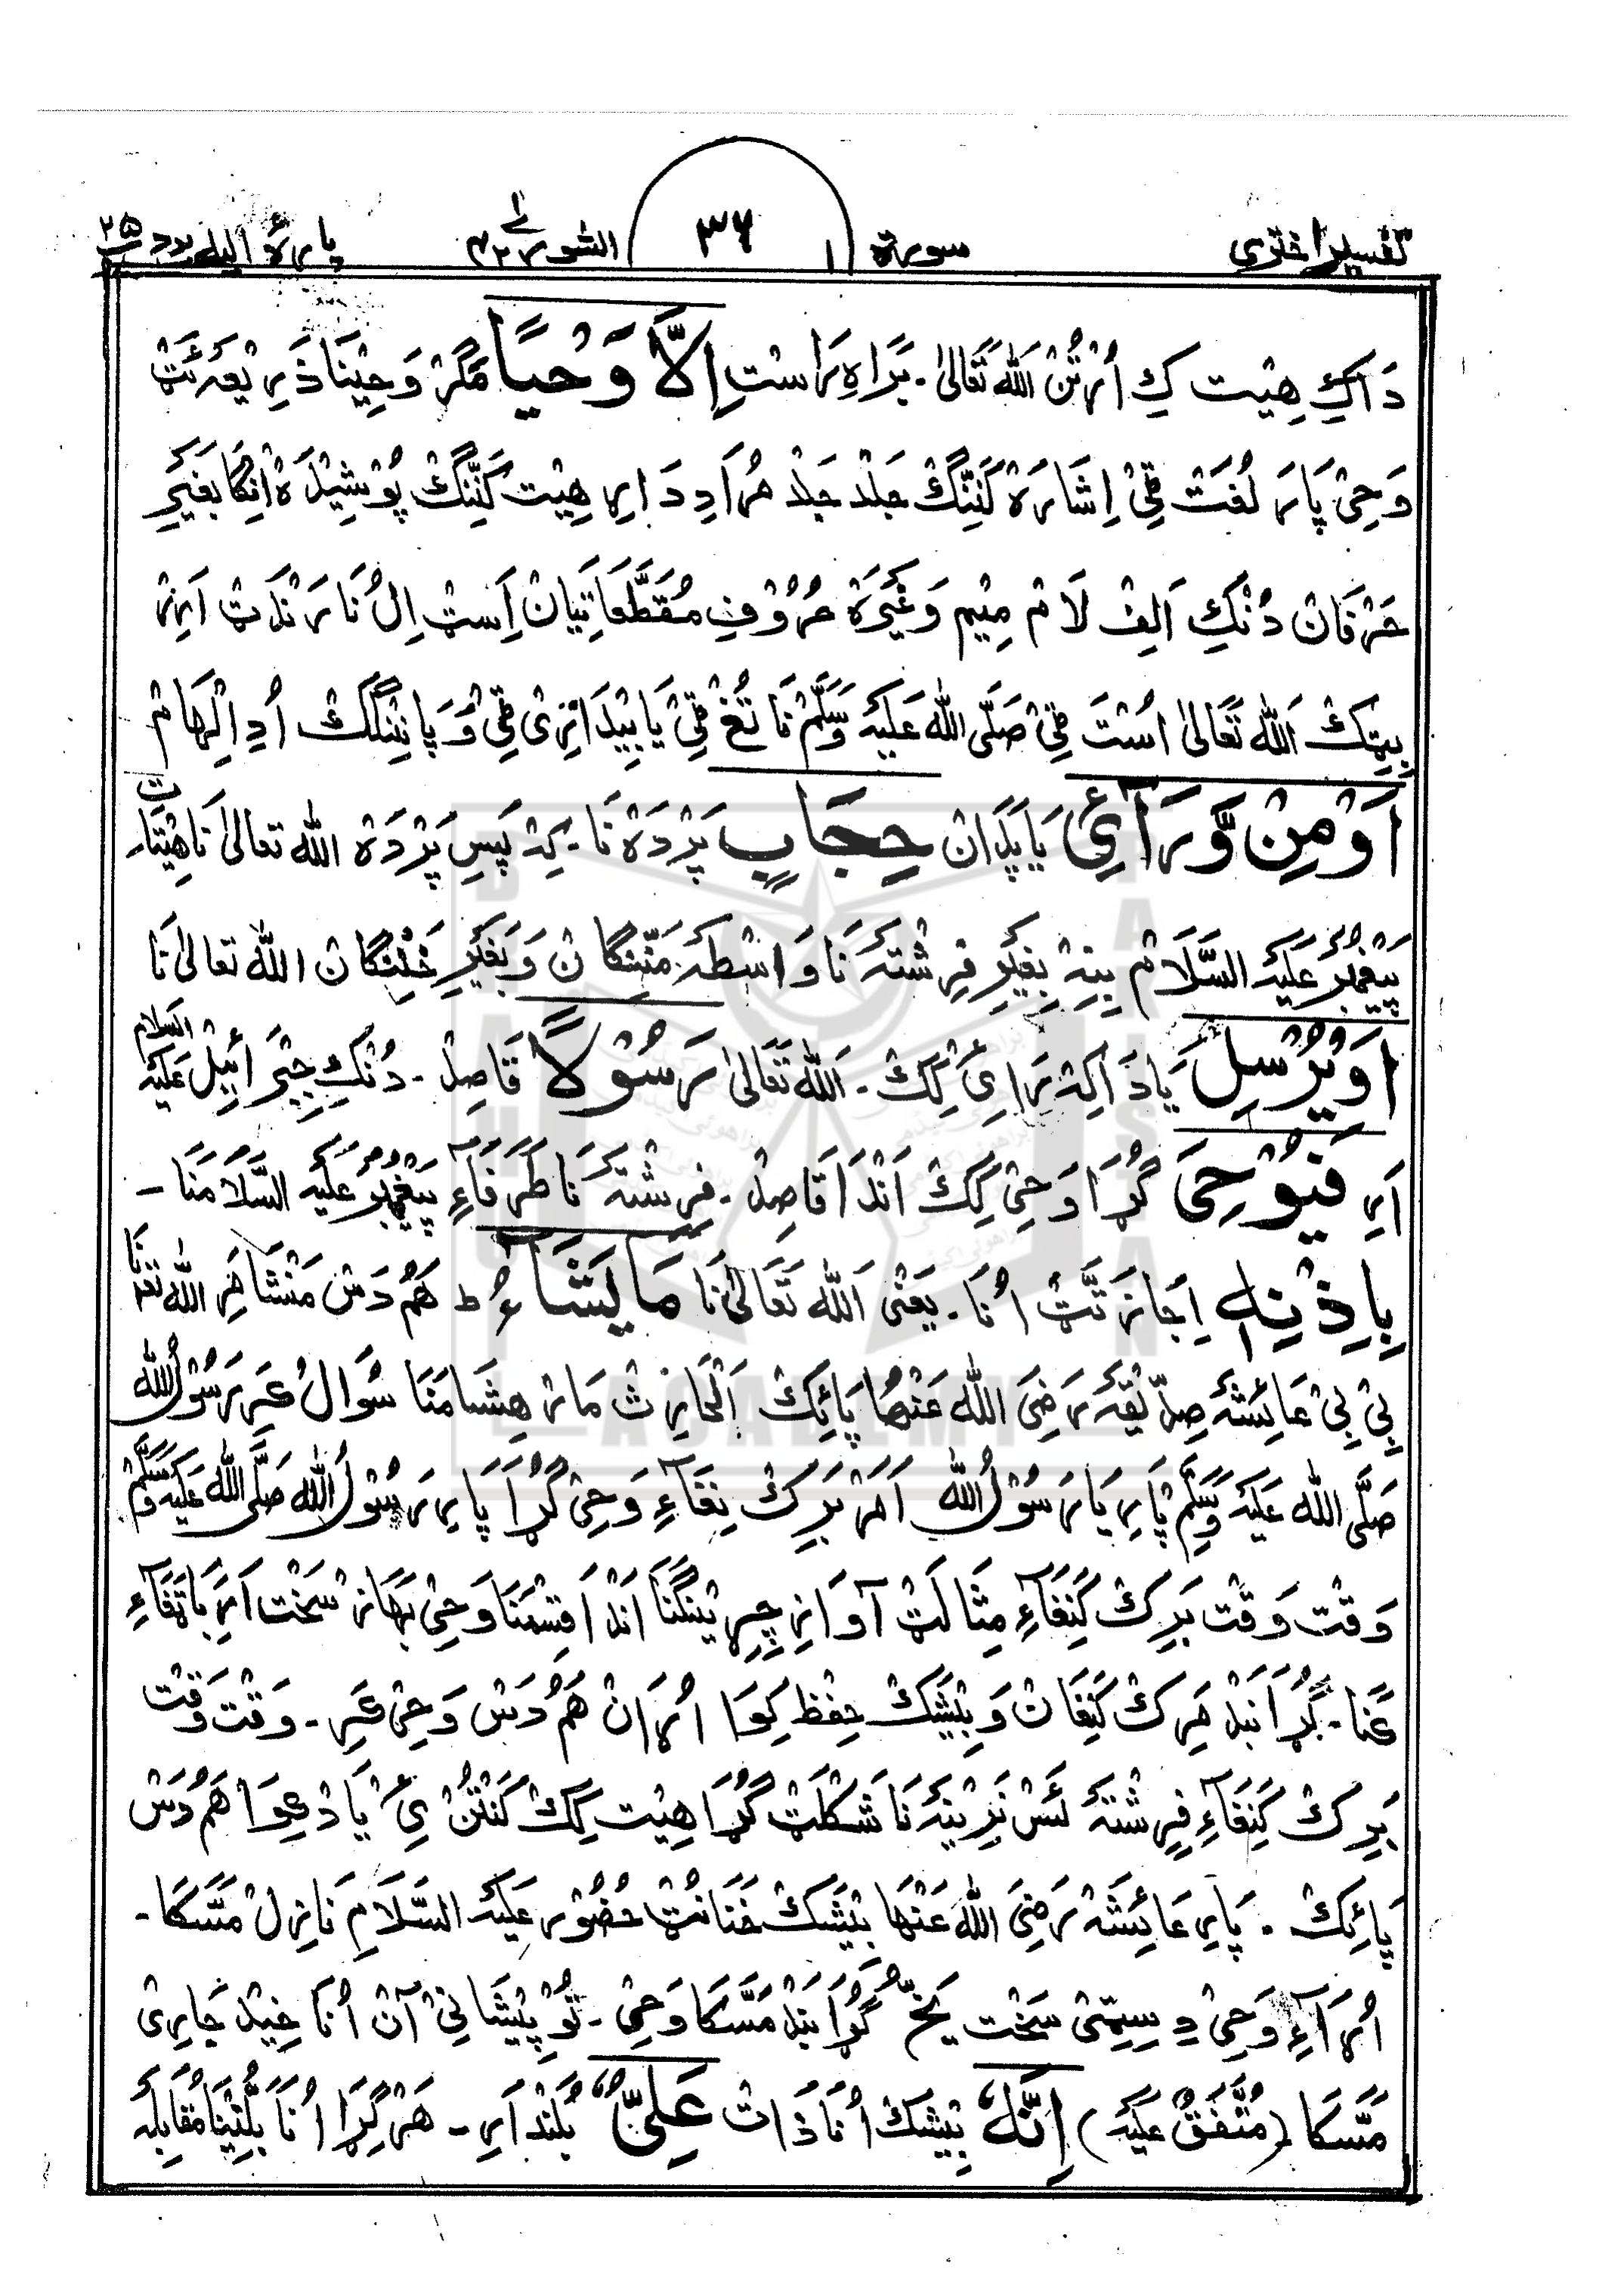 تفسیر اختری سورۃ ۳۶ الشوریٰ ۴۲ پارہ الیہ یرد ۲۵
دَاکِ هِیْت کِ اُرْتُنْ اَللّٰه تَعَالٰی۔ بَرَاهِ رَاسْت اِلَّا وَحْیًا مَگَرْ وَحِیْنَا ذَرِیْعَہ ئَتْ
وَحِیْ پَارَ لُغَتْ ٹِیْ اِشَارَہْ کَنِّنگْ جَلْد جَلْد مُرَادِ دَ اِیر هِیْت کَنِّنگْ پُوْشِیْدَہ اَنِگَا بَغَیرِ
حَرْفَانْ دُنْکِ اَلِفْ لَامْ مِیْم وَغَیْرَہْ حُرُوْفِ مُقَطَّعَاتِیَانْ اَسِتْ اِلُ نَا رَنْدَتْ اَرِیرْ
بِیتِکْ اَللّٰه تَعَالٰی اُسْتَ ٹِیْ صَلَّی اللّٰه عَلَیْهِ وَسَلَّمْ نَا تُغْ ٹِیْ یَا بِیْدَارِیْ ٹِیْ وَ پَانِنْگِکْ اُدِ اِلْہَامْ
اَوْ مِنْ وَّرَآئِ یَا پَدَانْ حِجَابٍ پَرْدَہْ نَا۔ کِہ پَسِ پَرْدَہْ اللّٰه تعالٰی نَا هِیْتَاتِ
پَیْغَمْبَرْ عَلَیْهِ السَّلَامْ بِنِہْ بِغَیرِ فِرِشْتَہ نَا وَاسْطَہ مَنِّنگَانْ وَ بَغَیرِ خَنِنگَانْ اللّٰه تعالٰی نَا
اَوْ یُرْسِلَ یَا دَاکِہ رَاہِیْ کِکْ۔ اَللّٰه تَعَالٰی رَسُوْلًا قَاصِدْ۔ دُنْکِ جِبْرَائِیْل عَلَیْهِ السلام
اَیر فَیُوْحِیَ گُڑَا وَحِیْ کِکْ اَنْدَا قَاصِدْ۔ فِرِشْتَہ نَا طَرَفَآءِ پَیْغَمْبَرْ عَلَیْهِ السَّلَامَنَا۔
بِاِذْنِهٖ اِجَازَتَّتْ اُنَا۔ یَعْنِی اَللّٰه تَعَالٰی نَا مَا یَشَآءُ ط هَمُ دَسْ مَنْشَا مَرِ اللّٰه تعالٰی نَا
بِیْ بِیْ عَائِشَہ صِدِّیْقَہ رَضِیَ اللّٰه عَنْهَا پَائِکْ اَلْحَارِثْ مَارْ هِشَامَنَا سُوَالْ کَرِ رَسُوْلُ اللّٰه
صَلَّی اللّٰه عَلَیْهِ وَسَلَّمْ پَارِ یَا رَسُوْلَ اللّٰه اَمَرْ بَرِکْ نِغَآءِ وَحِیْ گُڑَا پَارِ رَسُوْلُ اللّٰه صَلَّی اللّٰه عَلَیْهِ وَسَلَّمْ
وَقْت وَقْت بَرِکْ کَنَغَآءِ مِثَالَتْ آوَازِ چِیرِیْنگَنَا اَنْدَا قِسْمَنَا وَحِیْ بَهَازْ سَخْت اَرِ بَاتَغَآءِ
کَنَا۔ گُڑَا بَنْد مَرِکْ کَنِغَانْ وَ بِیْشَکْ حِفْظ کِوَا اُرَانْ هَمُ دَسْ وَحِیْ کَرِ۔ وَقْت وَقْت
بَرِکْ کَنَغَآءِ فِرِشْتَہ ئَسْ نَرِیْنَہ نَا شَکْلَتْ گُڑَا هِیْت کِکْ کَنْتُنْ یِیْ یَادْ کِوَا هَمُ دَسْ
پَائِکْ۔ پَارِ عَائِشَہْ رَضِیَ اللّٰه عَنْهَا بِیْشَکْ خَنَانُتْ حُضُوْر عَلَیْهِ السَّلَامِ نَازِلْ مَسَّکَا۔
اُرَآءِ وَحِیْ دِ سِیْمِیْ سَخْت یَخ گُڑَا بَنْد مَسَّکَا وَحِیْ۔ تَوْ پِیْشَانِیْ آنْ اُنَا خِیْد جَارِیْ
مَسَّکَا (مُتَّفَقٌ عَلَیْهِ) اِنَّهٗ بِیْشَکْ اُنَا ذَاتْ عَلِیٌّ بُلَنْد اَرِ۔ هَرْ گِڑَا اُنَا بَلَّنِیْنَا مُقَابِلَہ